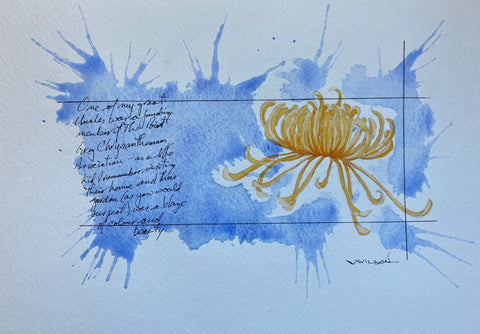 One of my great
Uncles was a founding
member of the local
Chrysanthemum
Association - as a little
kid I remember visiting
their home and their
garden (as you would
suspect) was a blaze
of colour and
beauty
WILSON